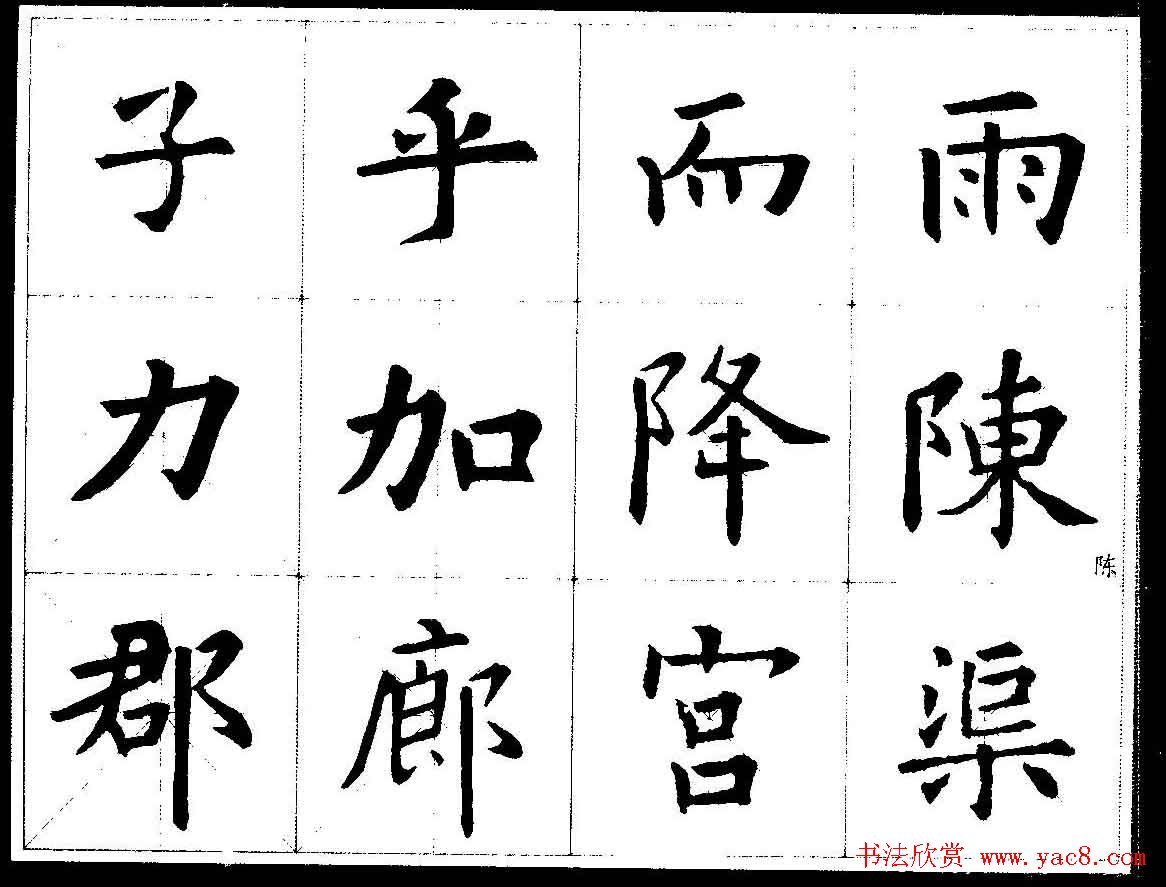 子乎而雨
力加降陳
陈
郡廊宫渠
书法欣赏 www.yac8.com